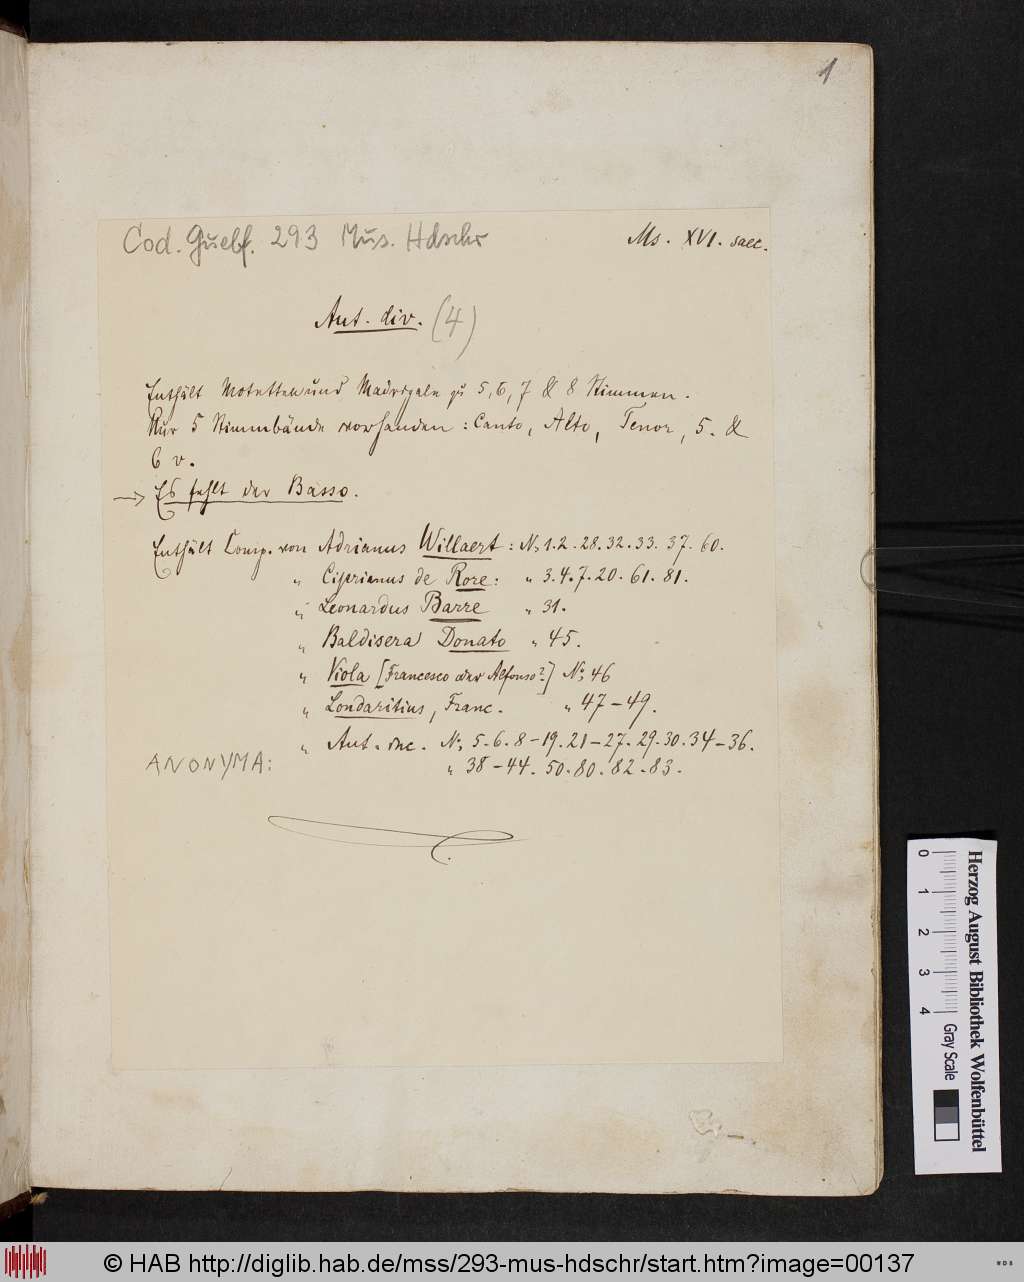 1
Cod. Guelf. 293 Mus. Hdschr
Ms. XVI. saec.
Aut. div. (4)
Enthält Motetten und Madrigale zu 5, 6, 7 & 8 Stimmen.
Nur 5 Stimmbände vorhanden: Canto, Alto, Tenor, 5. &
6 v.
→ Es fehlt der Basso.
Enthält Comp. von Adrianus Willaert: No 1. 2. 28. 32. 33. 37. 60.
" Ciprianus de Rore: " 3. 4. 7. 20. 61. 81.
" Leonardus Barre " 31.
" Baldisera Donato " 45.
" Viola [Francesco oder Alfonso?] No 46
" Londaritius, Franc. " 47–49.
" Aut. inc. No 5. 6. 8–19. 21–27. 29. 30. 34–36.
ANONYMA: " 38–44. 50. 80. 82. 83.
Herzog August Bibliothek Wolfenbüttel
0 1 2 3 4 Gray Scale
© HAB http://diglib.hab.de/mss/293-mus-hdschr/start.htm?image=00137